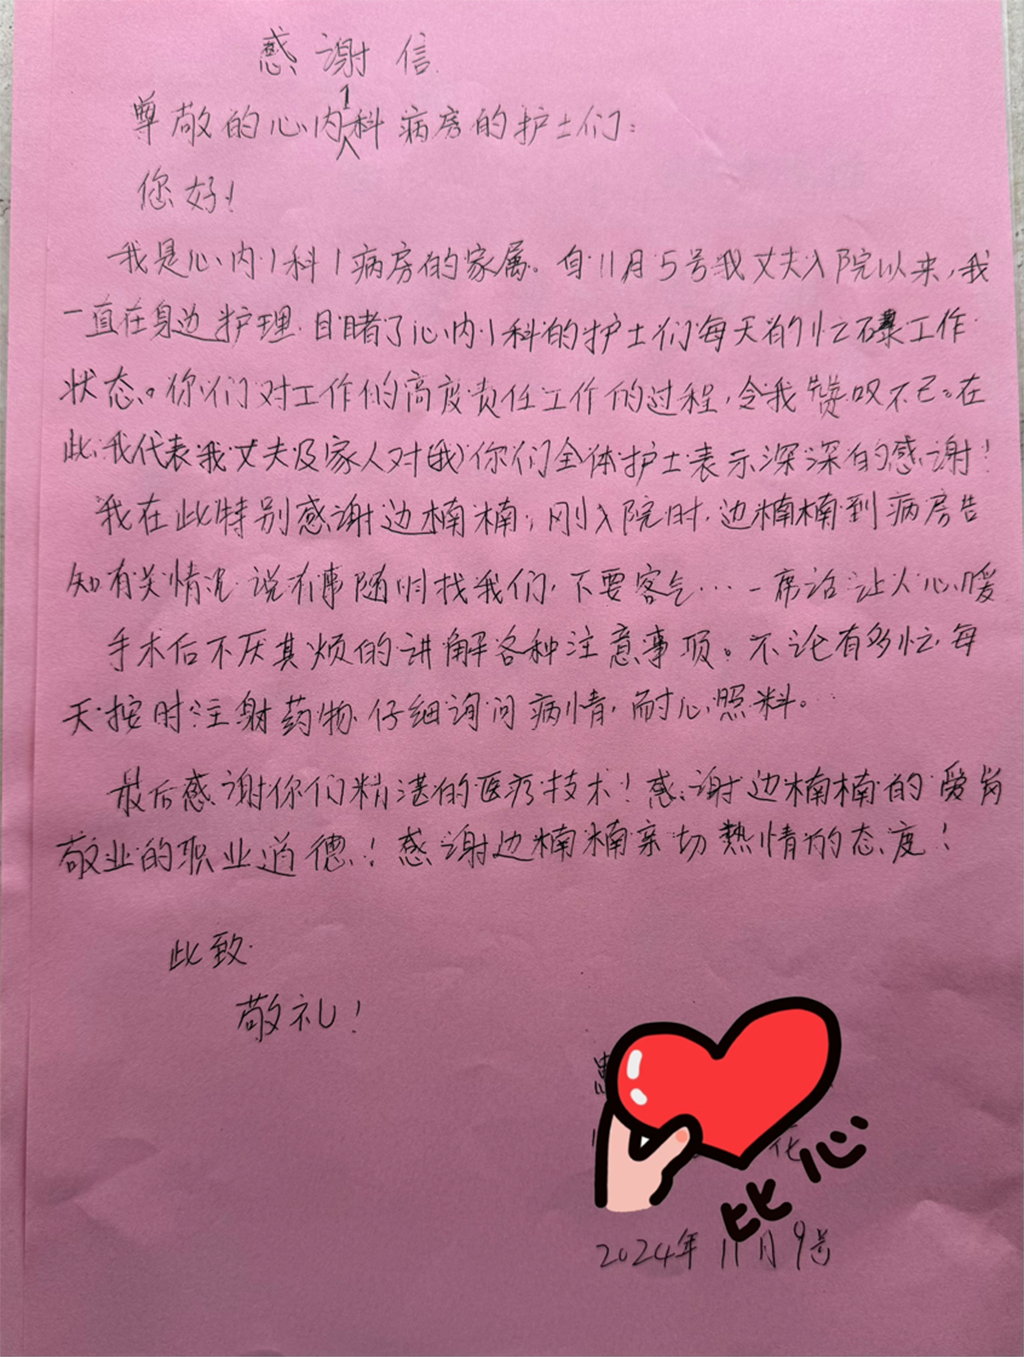 感谢信
尊敬的心内1科病房的护士们:
您好!
我是心内1科1病房的家属。自11月5号我丈夫入院以来,我
一直在身边护理.目睹了心内1科的护士们每天的忙碌工作
状态。你们对工作的高度责任工作的过程,令我赞叹不已。在
此,我代表我丈夫及家人对(我)你们全体护士表示深深的感谢!
我在此特别感谢边楠楠;刚入院时,边楠楠到病房告
知有关情况.说有事随时找我们,不要客气…一席话让人心暖
手术后不厌其烦的讲解各种注意事项。不论有多忙,每
天按时注射药物.仔细询问病情,耐心照料。
最后感谢你们精湛的医疗技术!感谢边楠楠的爱岗
敬业的职业道德!感谢边楠楠亲切热情的态度!
此致
敬礼!
患
花
比心
2024年11月9号